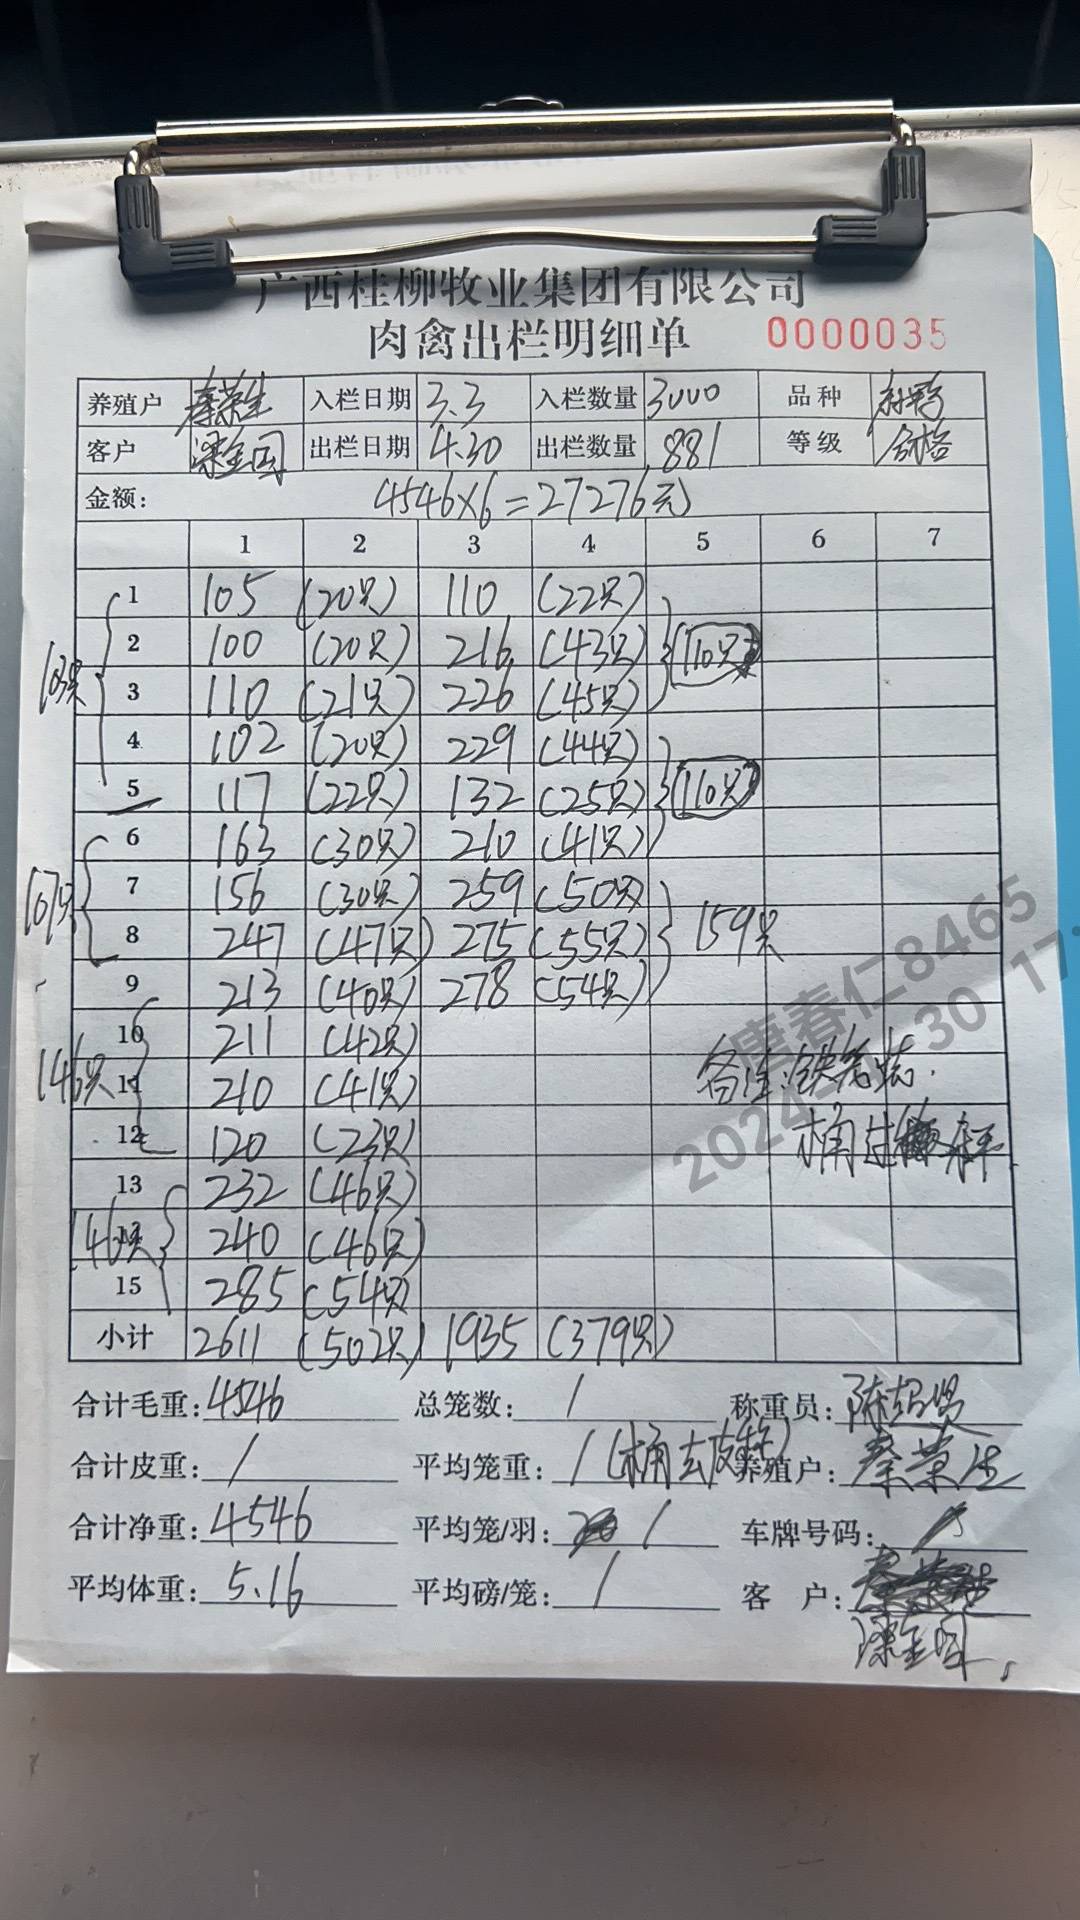 广西桂柳牧业集团有限公司
肉禽出栏明细单 0000035
养殖户 秦荣生 入栏日期 3.3 入栏数量 3000 品种
客户 梁全国 出栏日期 4.30 出栏数量 881 等级 合格
金额: 4546×6=27276元
1 2 3 4 5 6 7
1 105 (20只) 110 (22只)
2 100 (20只) 216 (43只) (110只)
103只 3 110 (21只) 226 (45只)
4 102 (20只) 229 (44只)
5 117 (22只) 132 (25只) (110只)
6 163 (30只) 210 (41只)
107只 7 156 (30只) 259 (50只)
8 247 (47只) 275 (55只) 159只
9 213 (40只) 278 (54只)
10 211 (42只)
146只 11 210 (41只) 备注:铁笼装.
12 120 (23只) 桶过秤.
13 232 (46只)
146只 240 (46只)
15 285 (54只)
小计 2611 (502只) 1935 (379只)
合计毛重: 4546 总笼数: / 称重员: 陈绍贤
合计皮重: / 平均笼重: / (桶去皮) 养殖户: 秦荣生
合计净重: 4546 平均笼/羽: / 车牌号码: /
平均体重: 5.16 平均磅/笼: / 客 户:
梁全国
唐春仁8465
2024- 30 17: